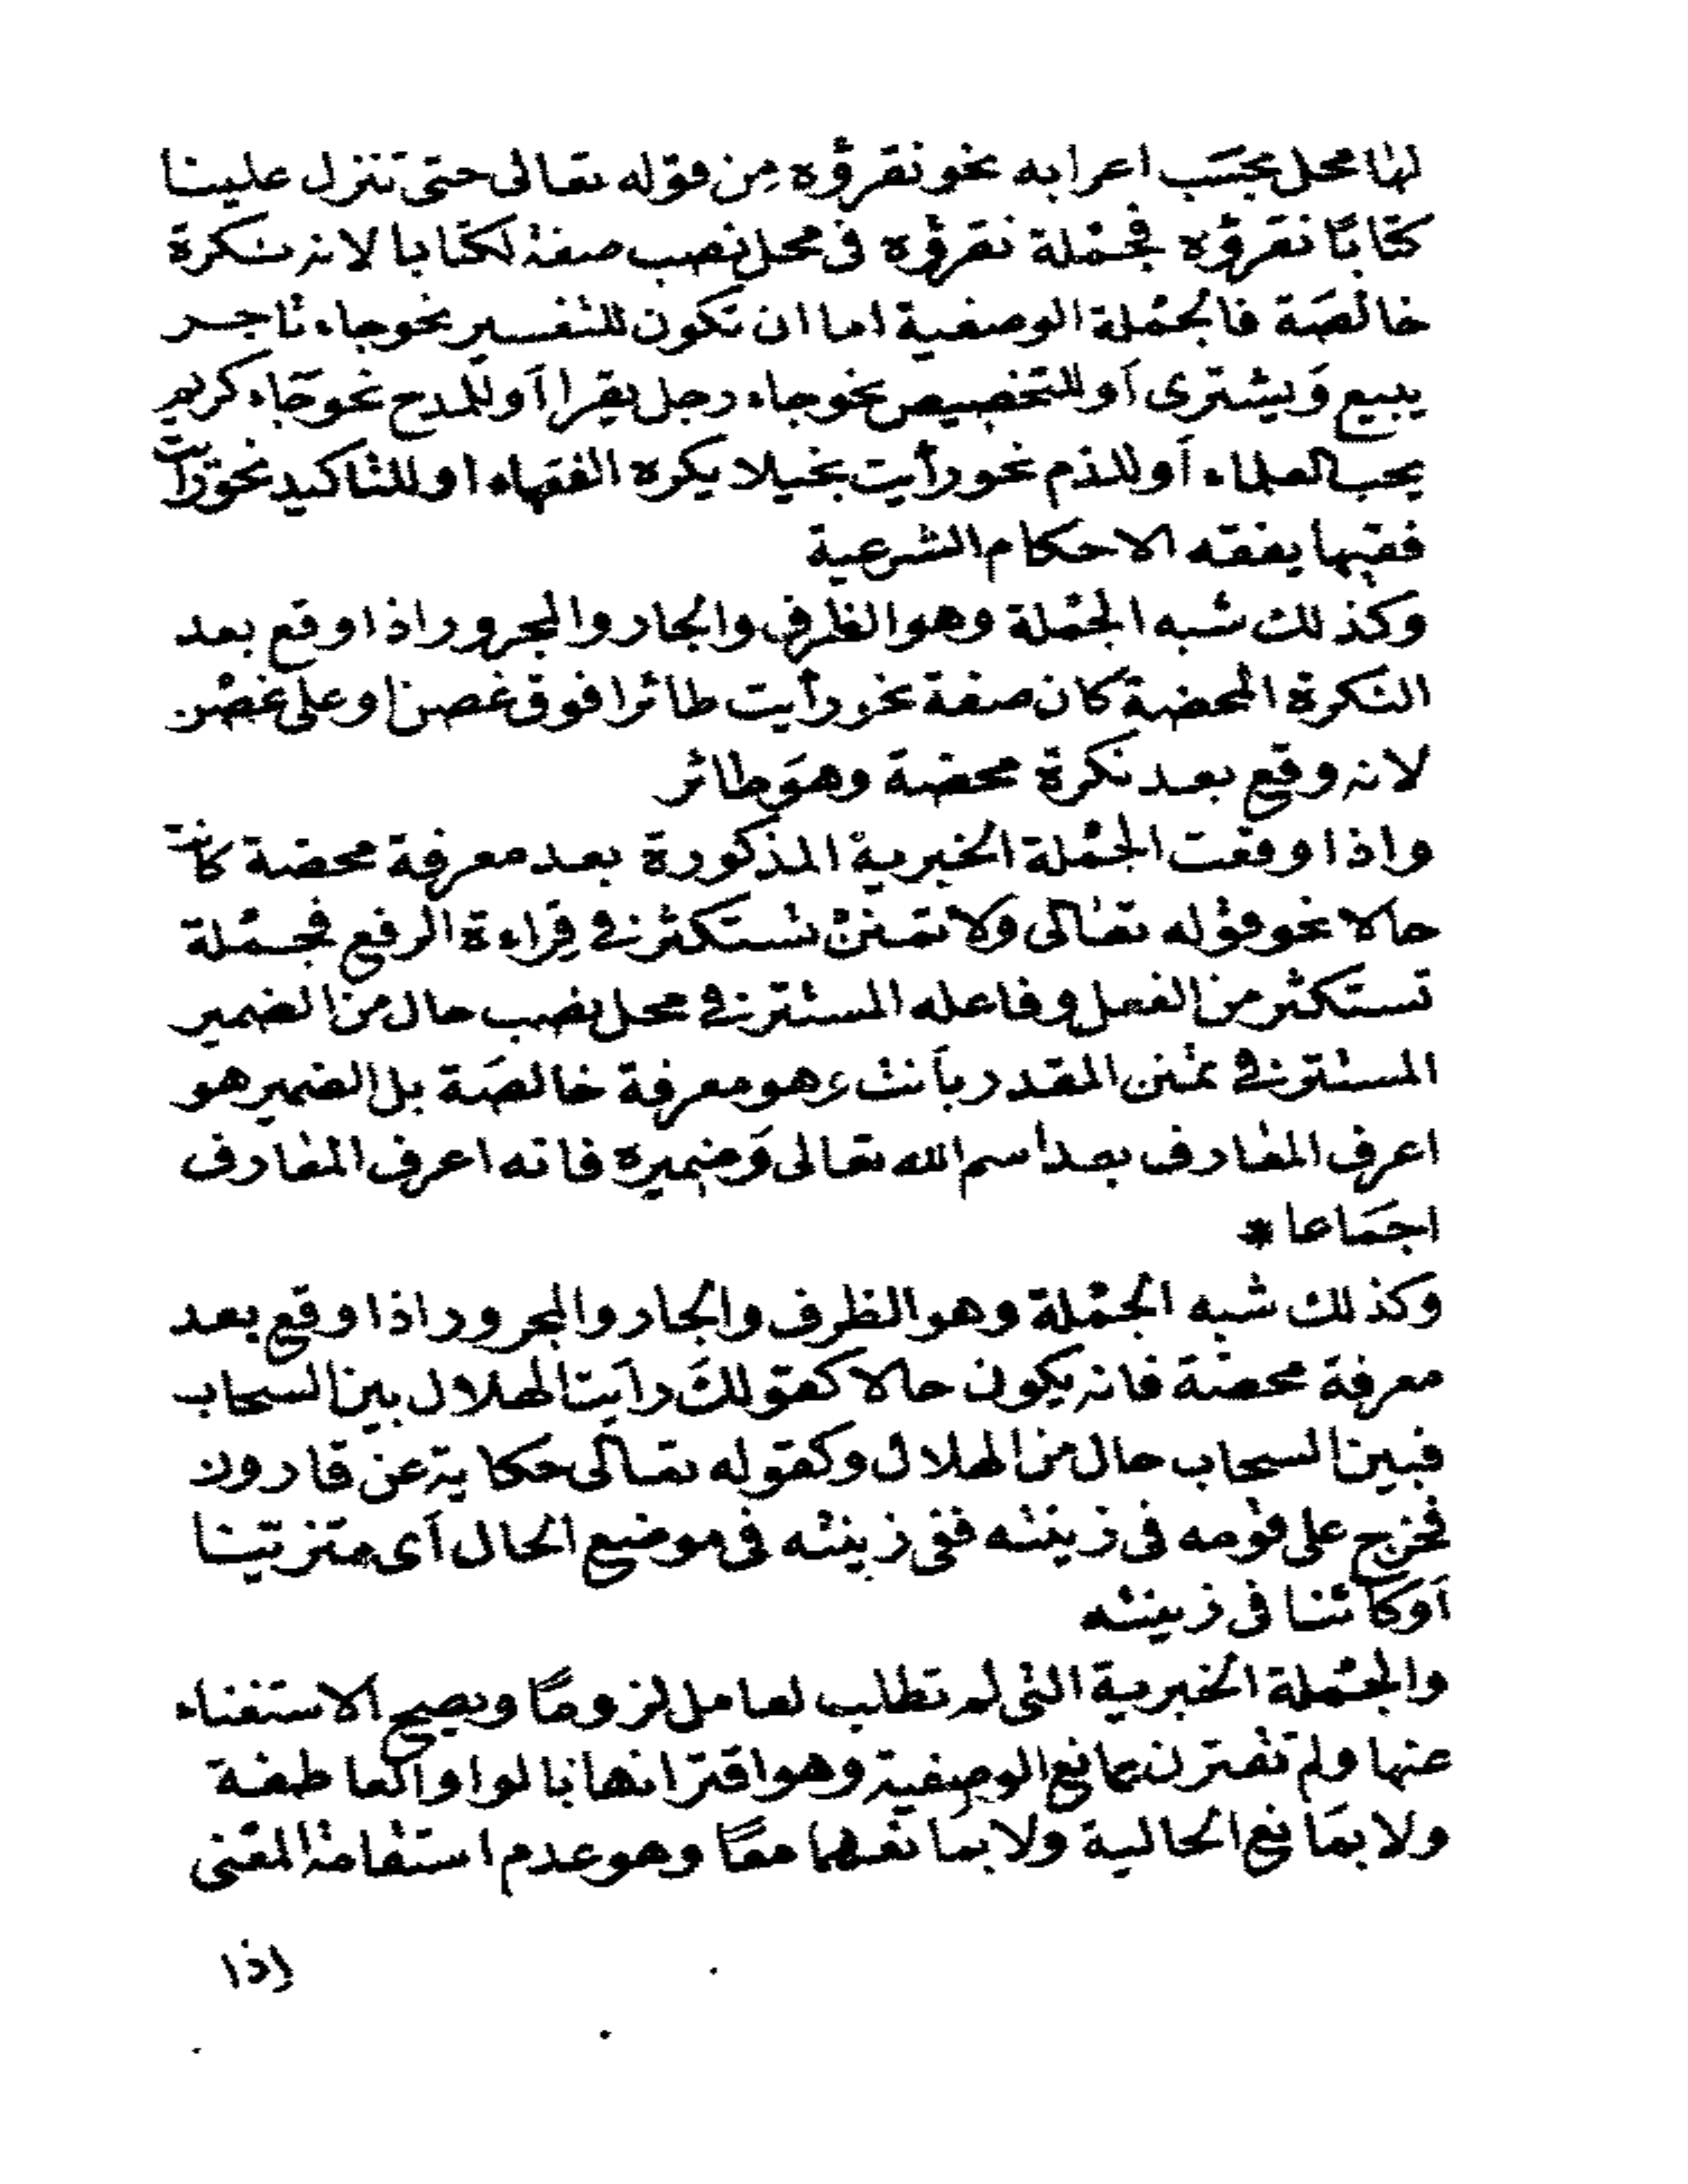 لها محل بحسب اعرابه نحو نقرؤه من قوله تعالى حتى تنزل علينا
كتابا نقرؤه فجملة نقرؤه فى محل نصب صفة لكتابا لانه نكرة
خالصة فالجملة الوصفية اما ان تكون للتفسير نحو جاء تاجر
يبيع ويشترى أو للتخصيص نحو جاء رجل يقرا أو للمدح نحو جاء كريم
يحب العلماء أو للذم نحو رأيت بخيلا يكره الفقهاء او للتاكيد نحو رأيت
فقيها يفقه الاحكام الشرعية
وكذلك شبه الجملة وهو الظرف والجار والمجرور اذا وقع بعد
النكرة المحضة كان صفة نحو رأيت طائرا فوق غصن او على غصن
لانه وقع بعد نكرة محضة وهو طائر
واذا وقعت الجملة الخبرية المذكورة بعد معرفة محضة كانت
حالا نحو قوله تعالى ولا تمنن تستكثر في قراءة الرفع فجملة
تستكثر من الفعل وفاعله المستتر في محل نصب حال من الضمير
المستتر في تمنن المقدر بأنت وهو معرفة خالصة بل الضمير هو
اعرف المعارف بعد اسم الله تعالى وضميره فانه اعرف المعارف
اجماعا *
وكذلك شبه الجملة وهو الظرف والجار والمجرور اذا وقع بعد
معرفة محضة فانه يكون حالا كقولك رأيت الهلال بين السحاب
فبين السحاب حال من الهلال وكقوله تعالى حكاية عن قارون
فخرج على قومه فى زينته ففى زينته فى موضع الحال أى متزينا
أو كائنا فى زينته
والجملة الخبرية التى لم تطلب لعامل لزوما ويصح الاستغناء
عنها ولم تقترن بمانع الوصفية وهو اقترانها بالواو العاطفة
ولا بمانع الحالية ولا بمانعهما معا وهو عدم استقامة المعنى
اذا